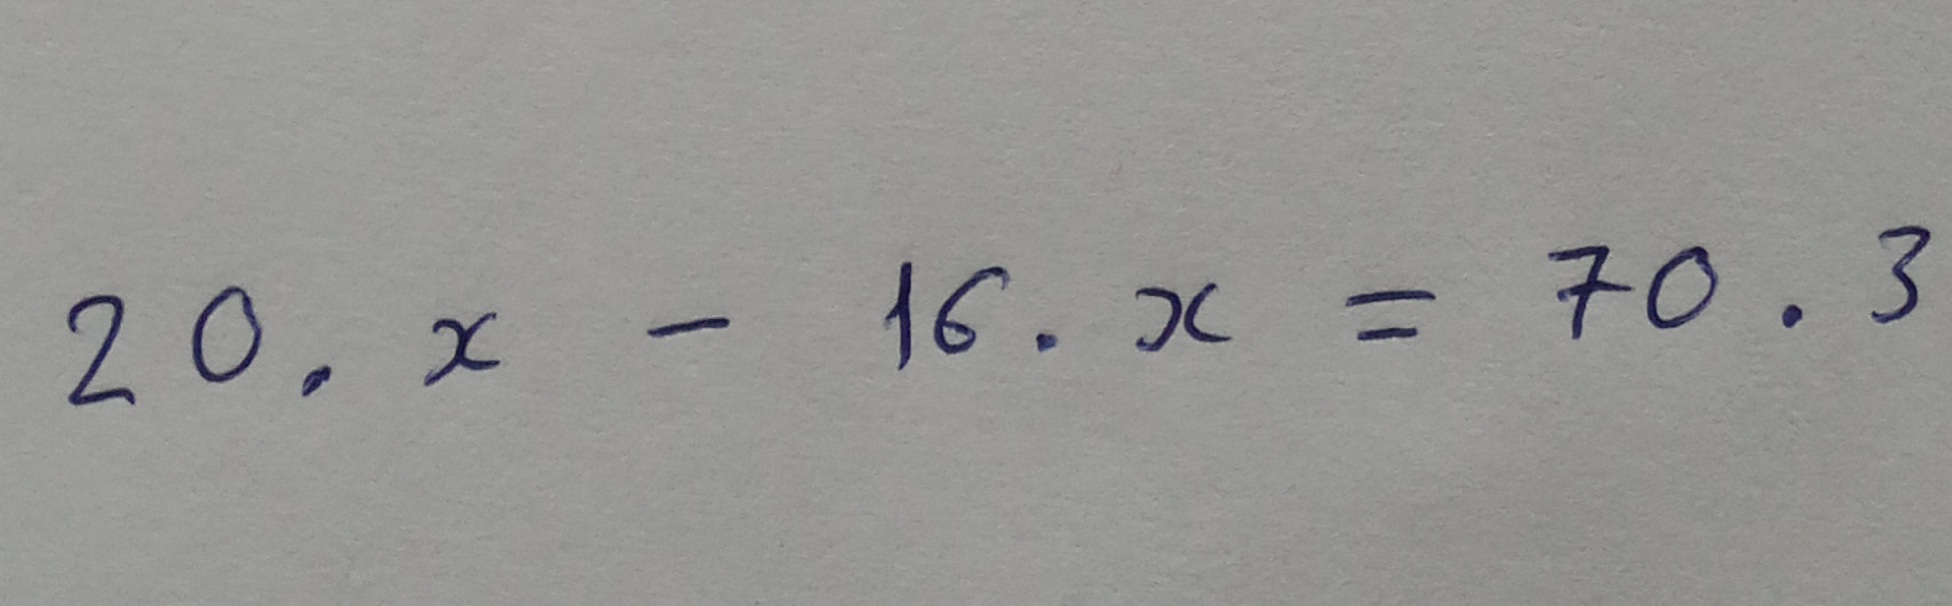 20. x - 16. x = 70. 3